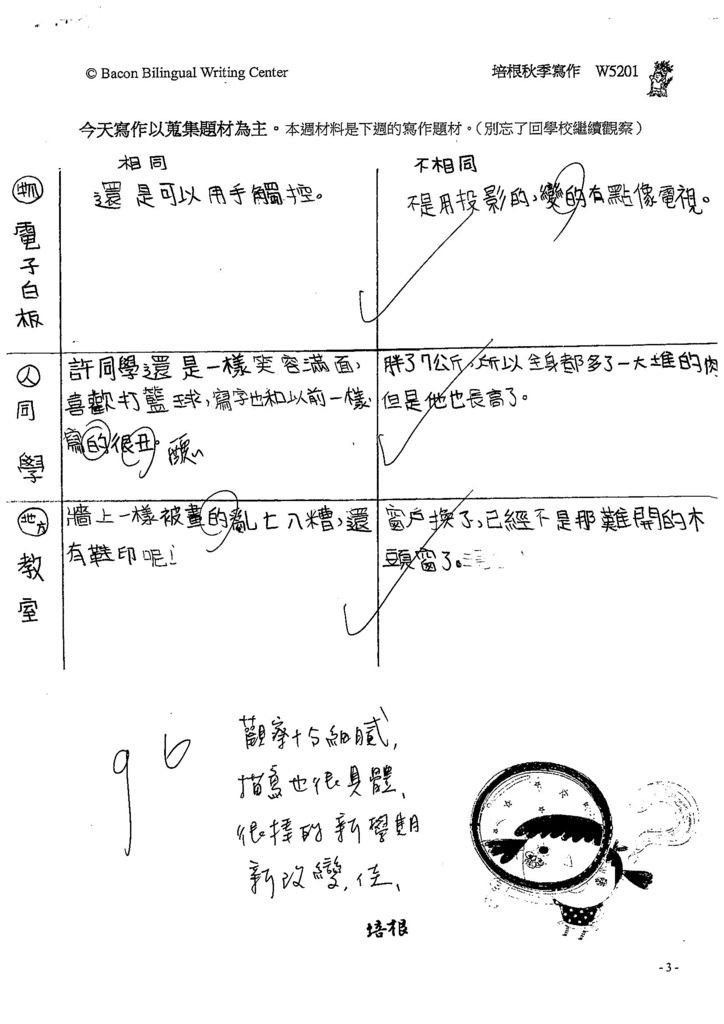 © Bacon Bilingual Writing Center
培根秋季寫作 W5201
今天寫作以蒐集題材為主。本週材料是下週的寫作題材。(別忘了回學校繼續觀察)
相同
不相同
物 電子白板
還是可以用手觸控。
不是用投影的,變的有點像電視。
人 同學
許同學還是一樣笑容滿面,
喜歡打籃球,寫字也和以前一樣
寫的很丑。醜
胖了7公斤,所以全身都多了一大堆的肉
但是他也長高了。
地方 教室
牆上一樣被畫的亂七八糟,還
有鞋印呢!
窗戶換了,已經不是那難開的木
頭窗了。
96
觀察十分細膩,
描寫也很具體、
很棒的新學期
新改變,佳、
培根
- 3 -